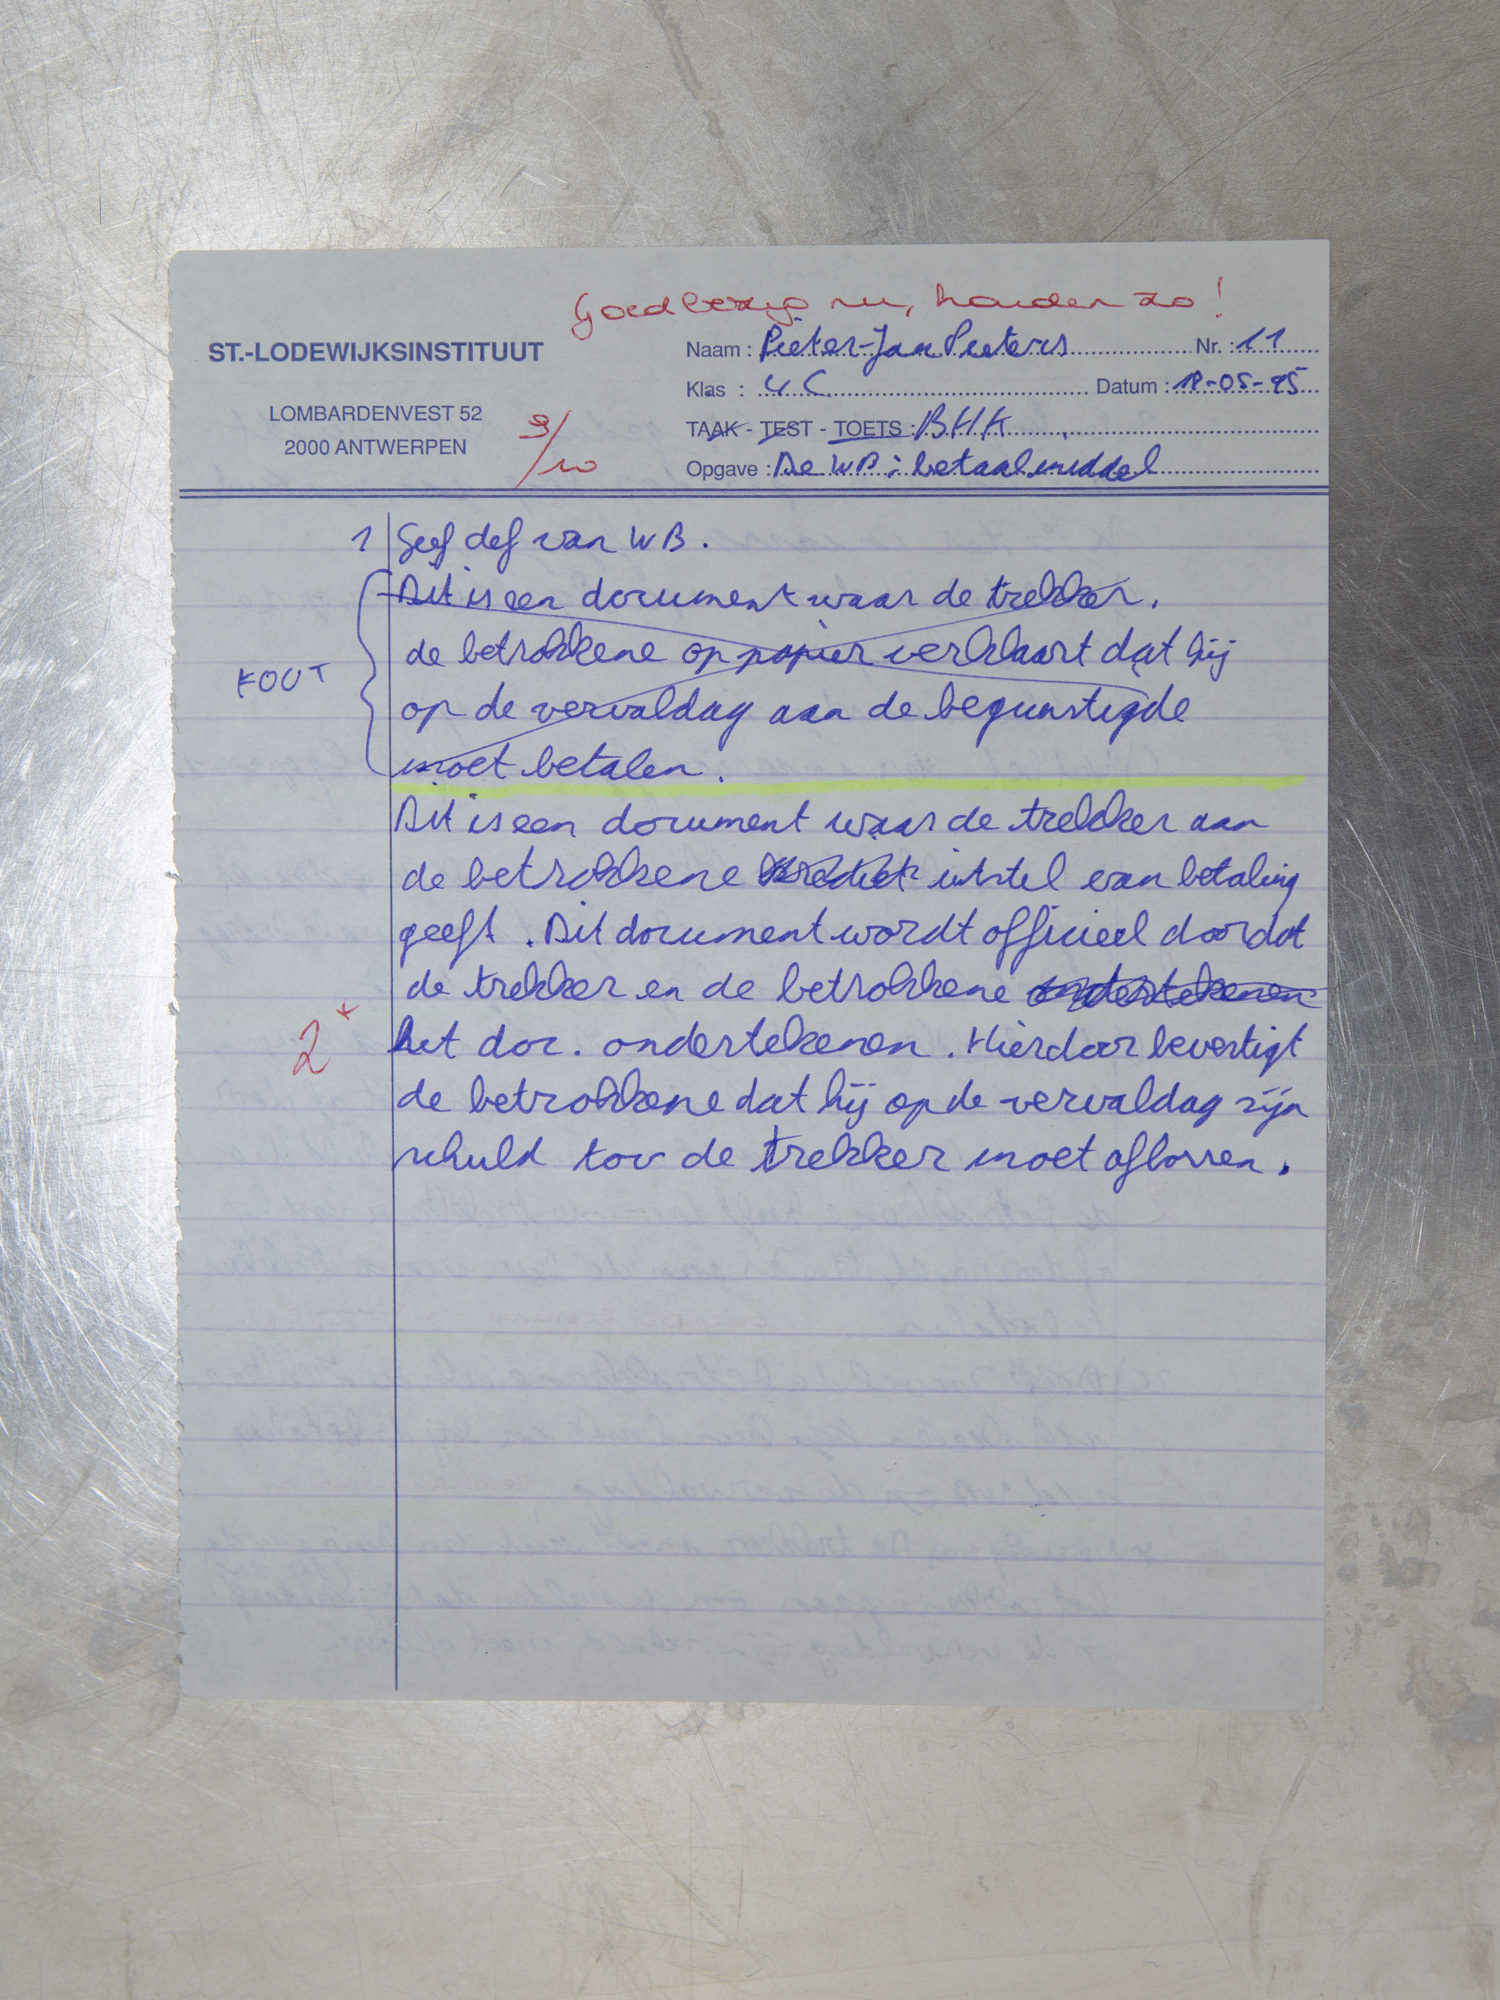 Goed bezig nu, houden zo!
ST.-LODEWIJKSINSTITUUT
Naam : Pieter-Jan Pieters Nr. : 11
Klas : 4 C Datum : 18-05-95
LOMBARDENVEST 52
2000 ANTWERPEN
9/10
TAAK - TEST - TOETS : BHK
Opgave : De WB : betaalmiddel
1 Geef def van WB.
Dit is een document waar de trekker,
de betrokkene op papier verklaart dat hij
FOUT
op de vervaldag aan de begunstigde
moet betalen.
Dit is een document waar de trekker aan
de betrokkene krediet uitstel van betaling
geeft. Dit document wordt officieel doordat
de trekker en de betrokkene ondertekenen
2
het doc. ondertekenen. Hierdoor bevestigt
de betrokkene dat hij op de vervaldag zijn
schuld tov de trekker moet aflossen.